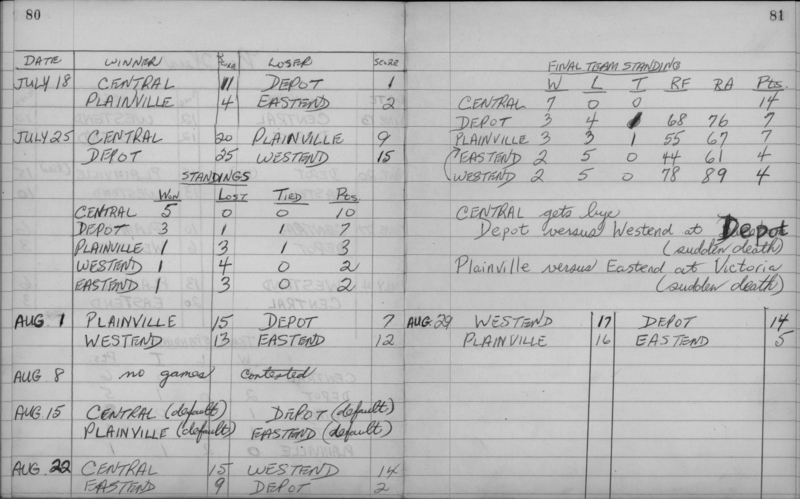 80
DATE WINNER SCORE LOSER SCORE
JULY 18 CENTRAL 11 DEPOT 1
PLAINVILLE 4 EASTEND 2
JULY 25 CENTRAL 20 PLAINVILLE 9
DEPOT 25 WESTEND 15
STANDINGS
WON LOST TIED POS.
CENTRAL 5 0 0 10
DEPOT 3 1 1 7
PLAINVILLE 1 3 1 3
WESTEND 1 4 0 2
EASTEND 1 3 0 2
AUG. 1 PLAINVILLE 15 DEPOT 7
WESTEND 13 EASTEND 12
AUG. 8 no games contested
AUG. 15 CENTRAL (default) DEPOT (default)
PLAINVILLE (default) EASTEND (default)
AUG. 22 CENTRAL 15 WESTEND 14
EASTEND 9 DEPOT 2
81
FINAL TEAM STANDING
W L T RF RA Pts.
CENTRAL 7 0 0 14
DEPOT 3 4 1 68 76 7
PLAINVILLE 3 3 1 55 67 7
EASTEND 2 5 0 44 61 4
WESTEND 2 5 0 78 89 4
CENTRAL gets bye
Depot versus Westend at Depot
(sudden death)
Plainville versus Eastend at Victoria
(sudden death)
AUG. 29 WESTEND 17 DEPOT 14
PLAINVILLE 16 EASTEND 5